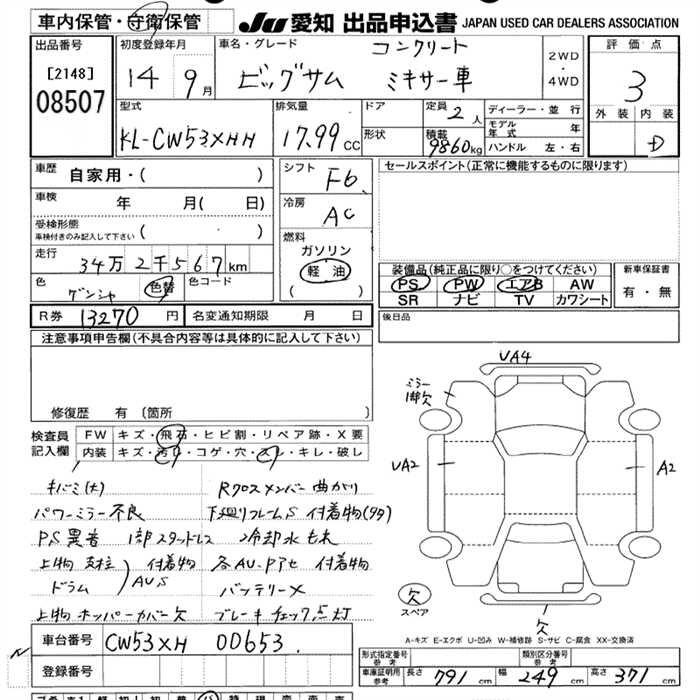 車内保管・守衛保管
JU 愛知 出品申込書 JAPAN USED CAR DEALERS ASSOCIATION
出品番号
[2148]
08507
初度登録年月
14 9月
車名・グレード
コンクリート
ビッグサム ミキサー車
2WD
・
4WD
評価点
3
外装 内装
D
型式
KL-CW53XHH
排気量
17.99cc
ドア
形状
定員 2人
積載 9860kg
ディーラー・並行
モデル年式 年
ハンドル 左・右
車歴 自家用・( )
車検 年 月( 日)
受検形態
車検付きのみ記入して下さい ( )
走行
34万2千567km
色 ゲンシャ 色替 色コード
シフト F6
冷房 AC
燃料
ガソリン
軽油
( )
セールスポイント(正常に機能するものに限ります)
装備品(純正品に限り○をつけてください)
PS PW エアB AW
SR ナビ TV カワシート
新車保証書
有・無
R券 13270円 名変通知期限 月 日
後日品
注意事項申告欄(不具合内容等は具体的に記入して下さい)
修復歴 有 (箇所 )
検査員記入欄
FW キズ・飛石・ヒビ割・リペア跡・X要
内装 キズ・汚れ・コゲ・穴・スレ・キレ・破し
キバミ(大) Rクロスメンバー曲がり
パワーミラー不良 下廻りフレームS 付着物(多々)
PS異音 1部スタッドレス 冷却水もれ
上物 支柱 付着物 各AU・P アセ 付着物
ドラム AUS バッテリーX
上物 ホッパーカバー欠 ブレーキチェック点灯
VA4
ミラー
1部欠
VA2
A2
欠
スペア
欠
A-キズ E-エクボ U-凹み W-補修跡 S-サビ C-腐食 XX-交換済
車台番号 CW53XH 00653
登録番号
形式指定番号
参考
類別区分番号
参考
車庫証明用
参考
長さ 791cm 幅 249cm 高さ 371cm